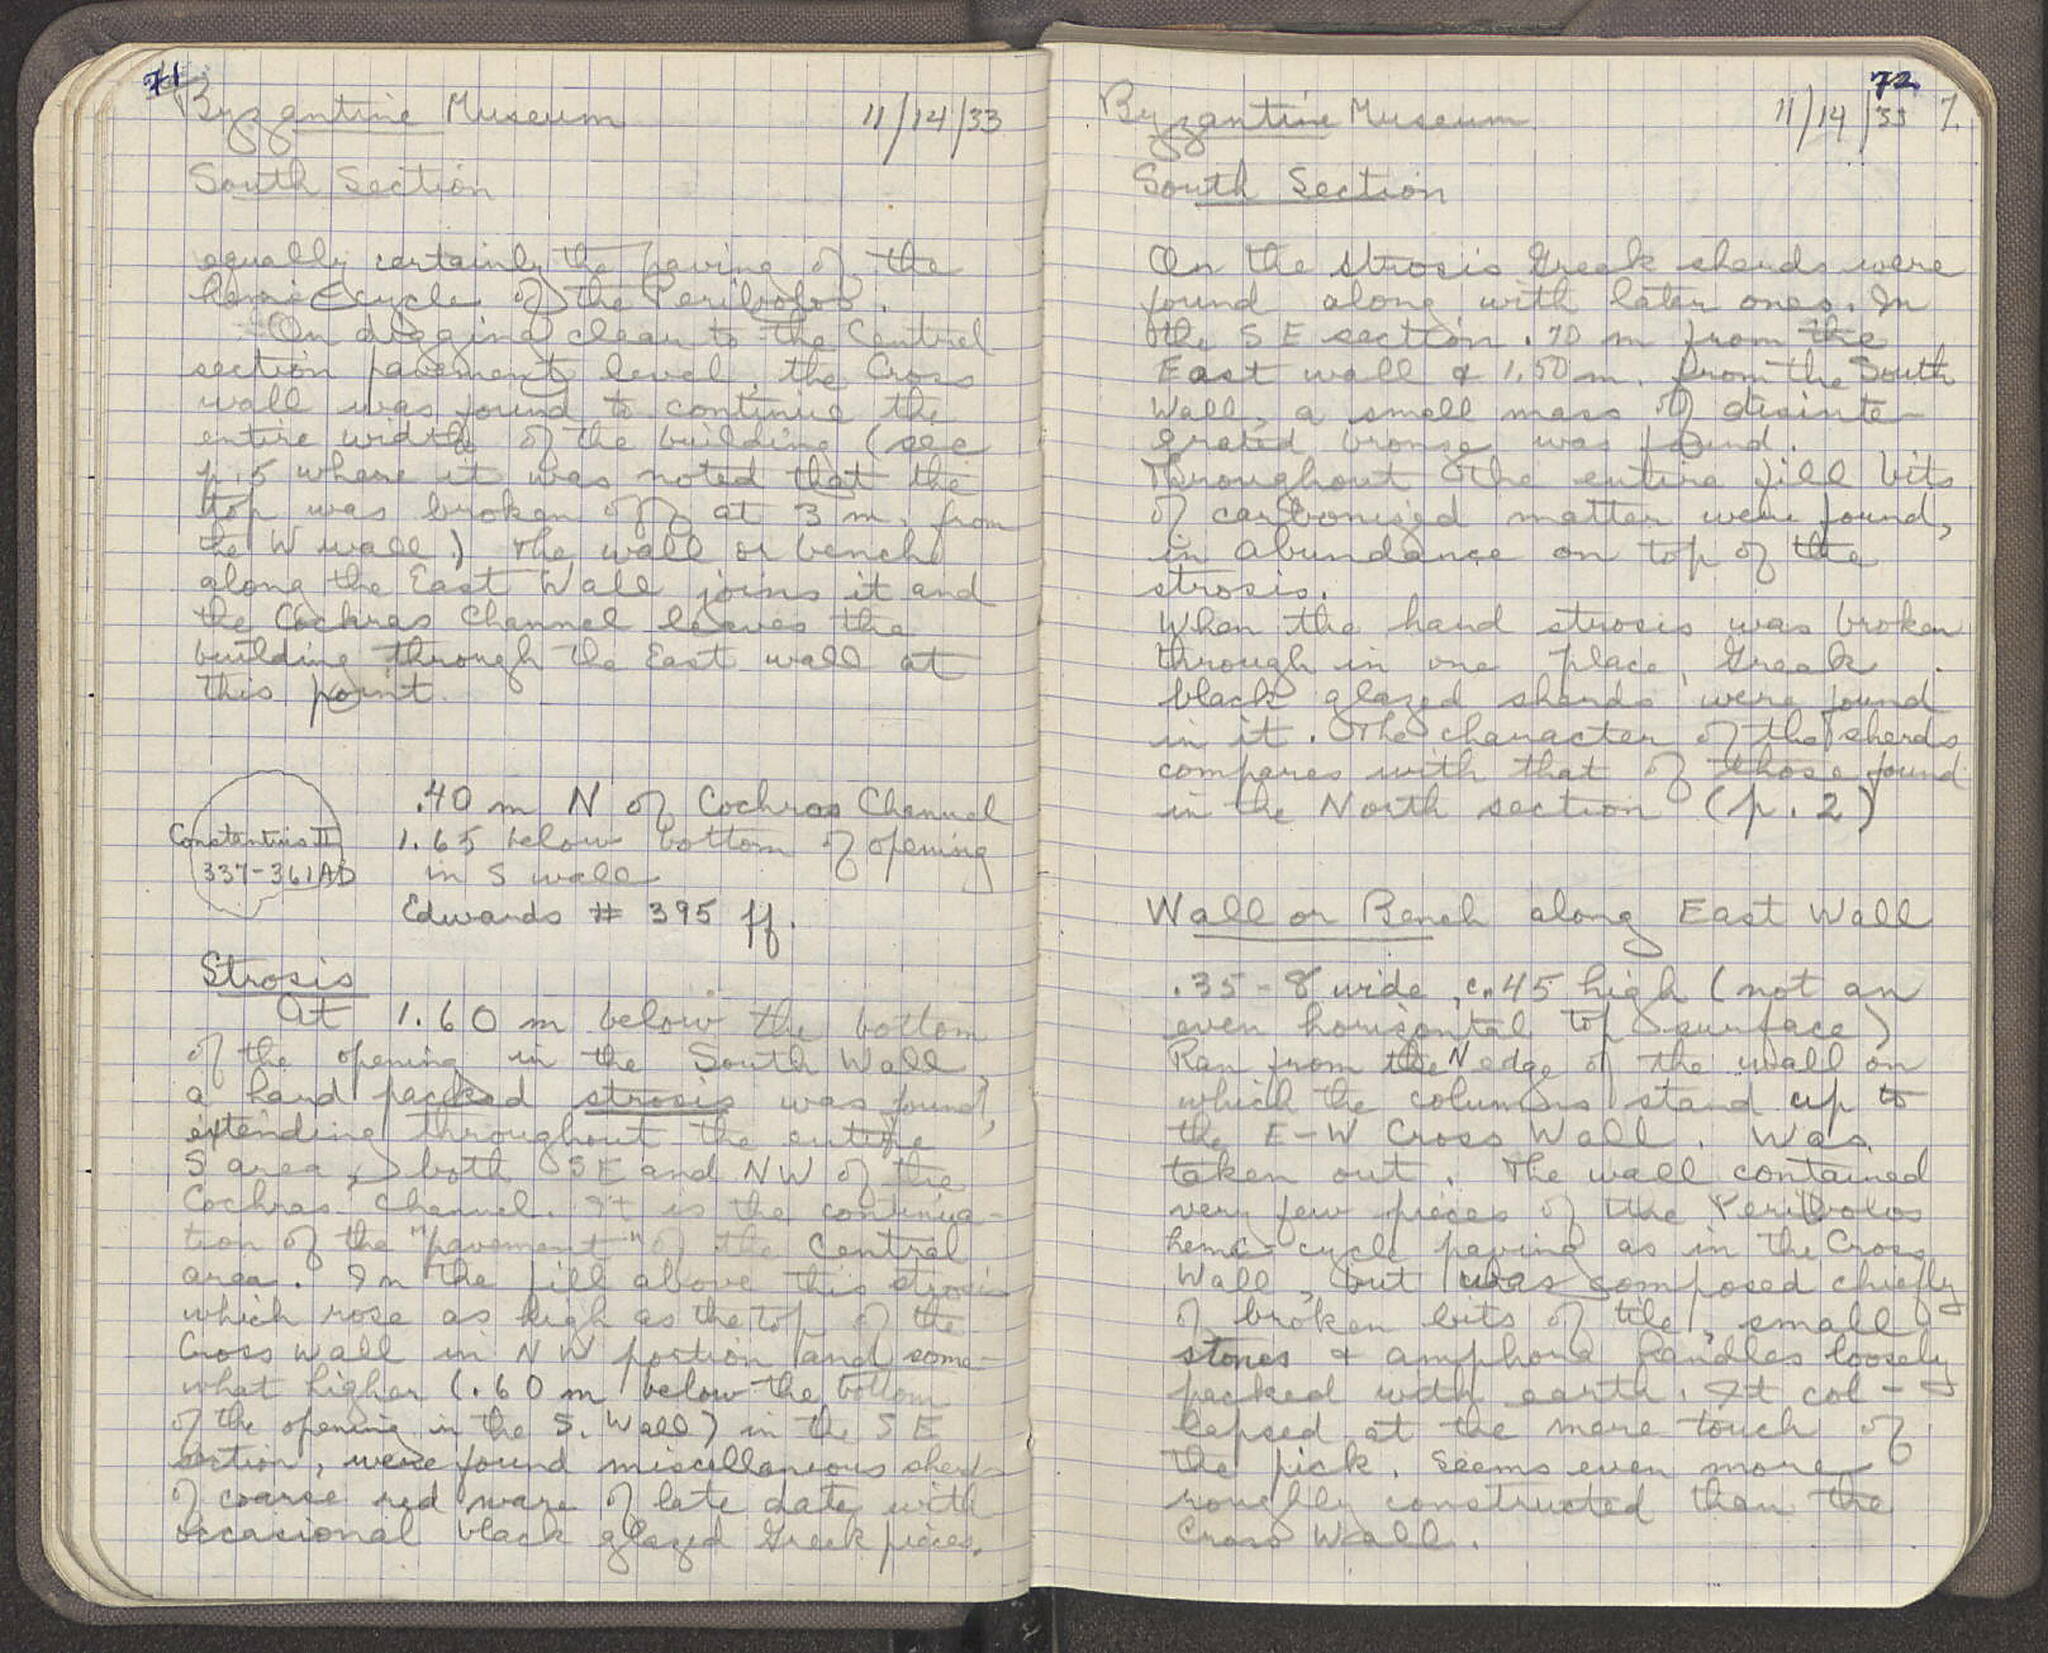 71
Byzantine Museum 11/14/33
South Section
equally certainly the paving of the
hemicycle of the Peribolos.
On digging clear to the Central
section pavement level, the Cross
wall was found to continue the
entire width of the building (see
p. 5 where it was noted that the
top was broken off at 3 m. from
the W wall.) The wall or bench
along the East Wall joins it and
the Cochras Channel leaves the
building through the East wall at
this point.
Constantius II
337-361 AD
.40 m N of Cochras Channel
1.65 below bottom of opening
in S wall
Edwards # 395 ff.
Strosis
At 1.60 m below the bottom
of the opening in the South Wall,
a hard packed strosis was found,
extending throughout the entire
S area, both SE and NW of the
Cochras Channel. It is the continua-
tion of the "pavement" of the Central
area. In the fill above this strosis
which rose as high as the top of the
Cross Wall in NW portion and some-
what higher (.60 m below the bottom
of the opening in the S. Wall) in the SE
section, were found miscellaneous sherds
of coarse red ware of late date with
occasional black glazed Greek pieces.
72
Byzantine Museum 11/14/33 7.
South Section
On the strosis Greek sherds were
found along with later ones. In
the SE section .70 m from the
East wall & 1.50 m. from the South
Wall, a small mass of disinte-
grated bronze was found.
Throughout the entire fill bits
of carbonized matter were found,
in abundance on top of the
strosis.
When the hard strosis was broken
through in one place, Greek
black glazed sherds were found
in it. The character of the sherds
compares with that of those found
in the North section (p. 2)
Wall or Bench along East Wall
.35-8 wide, c. .45 high (not an
even horizontal top surface)
Ran from the N edge of the wall on
which the columns stand up to
the E-W Cross Wall. Was
taken out. The wall contained
very few pieces of the Peribolos
hemi-cycle paving as in the Cross
Wall, but was composed chiefly
of broken bits of tile, small
stones & amphora handles loosely
packed with earth. It col-
lapsed at the mere touch of
the pick. Seems even more
roughly constructed than the
Cross Wall.